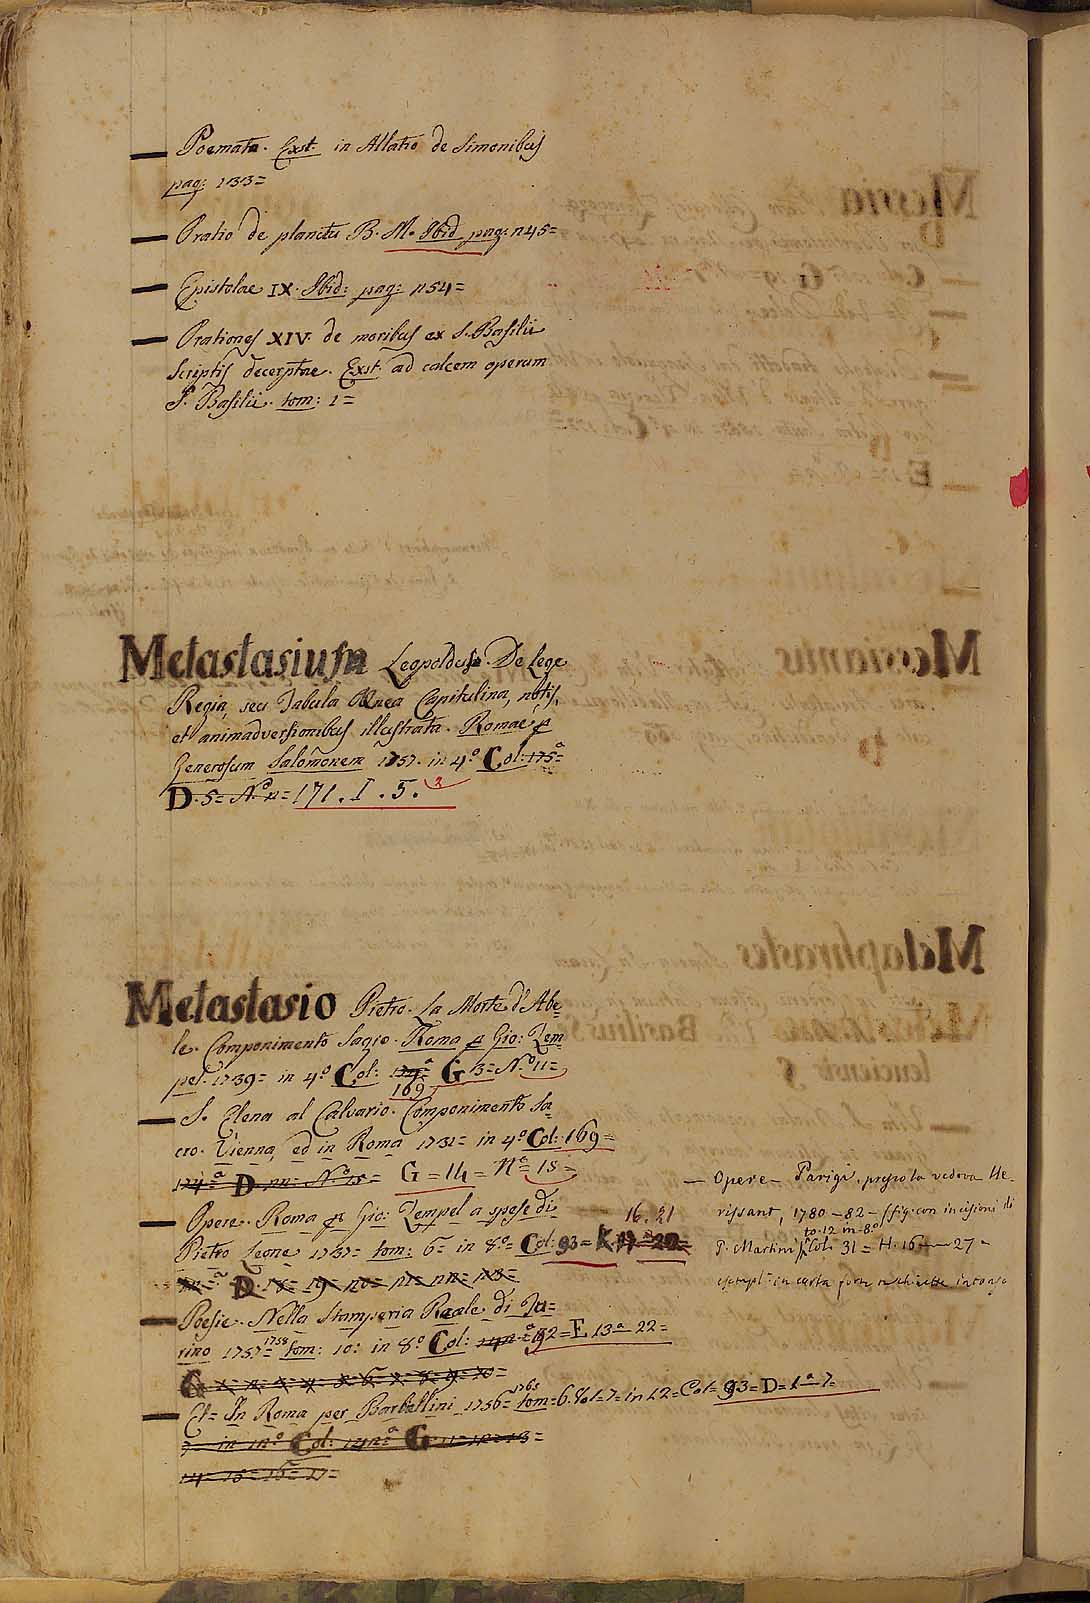 — Poemata. Exst. in Allatio de Simonibus
pag: 133=
— Oratio de planctu B. M. Ibid. pag: 145=
— Epistolae IX. Ibid: pag: 154=
— Orationes XIV. de moribus ex S. Basilii
Scriptis decerptae. Exst. ad calcem operum
S. Basilii. tom: 1=
Metastasium Leopoldus. De Lege
Regia, seu Tabula Ænea Capitolina, notis,
et animadversionibus illustrata. Romae p
Generosum Salomonem 1757. in 4.º Col: 175ª
D. 5= N.º 11= 171. I. 5. 2
Metastasio Pietro. La Morte d'Abe=
le. Componimento Sagro. Roma p Gio: Zem
pel. 1739= in 4.º Col: G 3= N.º 11=
169
— S. Elena al Calvario. Componimento Sa=
cro. Vienna, ed in Roma 1731= in 4.º Col: 169=
D N.º 15= G=14= N.º 15=
— Opere. Roma p Gio: Zempel a spese di
16. 21
Pietro Leone 1737= tom: 6= in 8.º= Col: 93= K.
D. 18= 19=
— Poesie. Nella Stamperia Reale di Tu=
rino 1757=1758 tom: 10: in 8.º Col: 92=E. 13ª 22=
G
— Et= In Roma per Barbellini 1756=1765 tom=6. Vol=7= in 12=Col= 93=D=1ª 7=
7= in 12.º Col: 142ª G 11=12=13=
14= 15= 16= 17=
— Opere— Parigi, presso la vedova He-
rissant, 1780—82— fig. con incisioni di
to. 12 in 8.º
P. Martini Col: 31= H. 16—27=
esempl. in carta forte